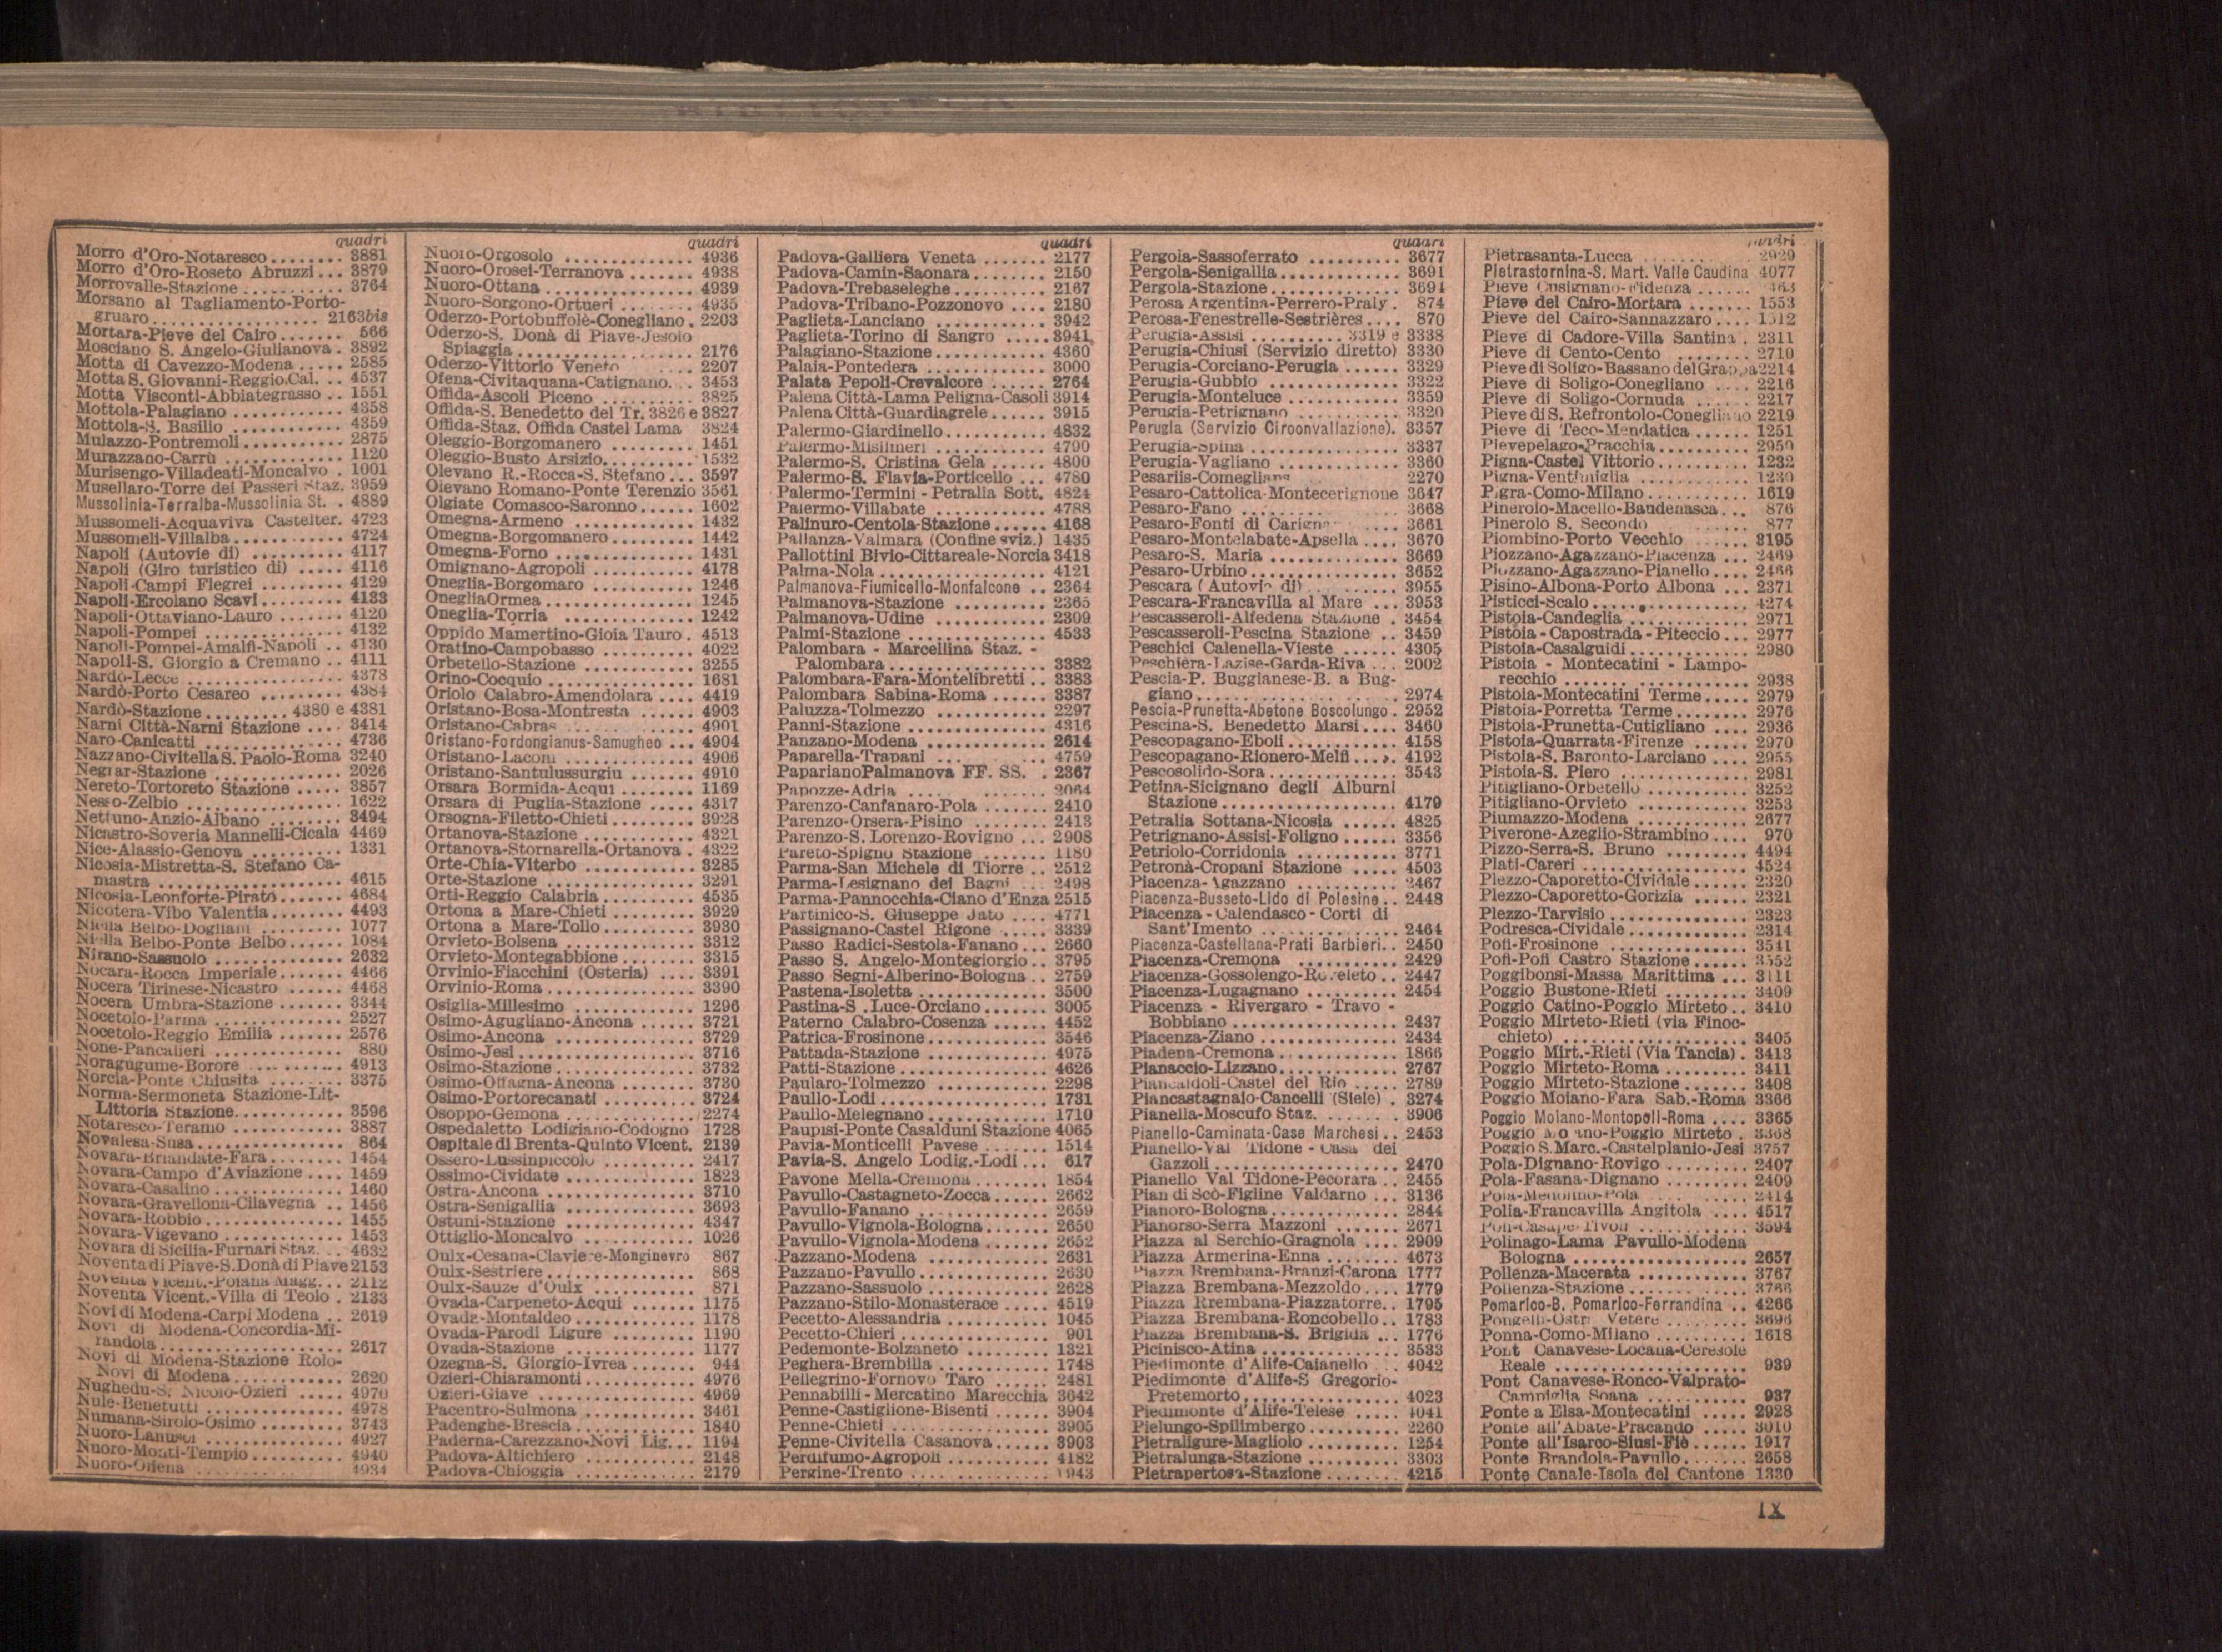 quadri
Morro d'Oro-Notaresco ........ 3881
Morro d'Oro-Roseto Abruzzi ... 3879
Morrovalle-Stazione ........... 3764
Morsano al Tagliamento-Porto-
gruaro .................. 2163bis
Mortara-Pieve del Cairo ....... 566
Mosciano S. Angelo-Giulianova . 3892
Motta di Cavezzo-Modena ..... 2585
Motta S. Giovanni-Reggio Cal. .. 4537
Motta Visconti-Abbiategrasso .. 1551
Mottola-Palagiano ............ 4358
Mottola-S. Basilio ............ 4359
Mulazzo-Pontremoli ........... 2875
Murazzano-Carrù ............. 1120
Murisengo-Villadeati-Moncalvo . 1001
Musellaro-Torre dei Passeri Staz. 3959
Mussolinia-Terralba-Mussolinia St. . 4889
Mussomeli-Acquaviva Castelter. 4723
Mussomeli-Villalba ............ 4724
Napoli (Autovie di) .......... 4117
Napoli (Giro turistico di) ..... 4116
Napoli-Campi Flegrei ......... 4129
Napoli-Ercolano Scavi ......... 4133
Napoli-Ottaviano-Lauro ....... 4120
Napoli-Pompei ............... 4132
Napoli-Pompei-Amalfi-Napoli .. 4130
Napoli-S. Giorgio a Cremano .. 4111
Nardò-Lecce ................. 4378
Nardò-Porto Cesareo ......... 4384
Nardò-Stazione ......... 4380 e 4381
Narni Città-Narni Stazione .... 3414
Naro-Canicatti ............... 4736
Nazzano-Civitella S. Paolo-Roma 3240
Negrar-Stazione .............. 2026
Nereto-Tortoreto Stazione ..... 3857
Nesso-Zelbio ................. 1622
Nettuno-Anzio-Albano ........ 3494
Nicastro-Soveria Mannelli-Cicala 4469
Nice-Alassio-Genova .......... 1331
Nicosia-Mistretta-S. Stefano Ca-
mastra .................... 4615
Nicosia-Leonforte-Pirato ....... 4684
Nicotera-Vibo Valentia ......... 4493
Niella Belbo-Dogliani ......... 1077
Niella Belbo-Ponte Belbo ...... 1084
Nirano-Sassuolo .............. 2632
Nocara-Rocca Imperiale ....... 4466
Nocera Tirinese-Nicastro ...... 4468
Nocera Umbra-Stazione ....... 3344
Nocetolo-Parma .............. 2527
Nocetolo-Reggio Emilia ....... 2576
None-Pancalieri .............. 880
Noragugume-Borore .......... 4913
Norcia-Ponte Chiusita ........ 3375
Norma-Sermoneta Stazione-Lit-
Littoria Stazione ............ 3596
Notaresco-Teramo ............ 3887
Novalesa-Susa ............... 864
Novara-Briandate-Fara ........ 1454
Novara-Campo d'Aviazione .... 1459
Novara-Casalino .............. 1460
Novara-Gravellona-Cilavegna .. 1456
Novara-Robbio ............... 1455
Novara-Vigevano ............. 1453
Novara di Sicilia-Furnari Staz. .. 4632
Noventa di Piave-S. Donà di Piave 2153
Noventa Vicent.-Poiana Magg. .. 2112
Noventa Vicent.-Villa di Teolo . 2133
Novi di Modena-Carpi Modena .. 2619
Novi di Modena-Concordia-Mi-
randola .................... 2617
Novi di Modena-Stazione Rolo-
Novi di Modena ............ 2620
Nughedu-S. Nicolò-Ozieri ..... 4970
Nule-Benetutti ............... 4978
Numana-Sirolo-Osimo ......... 3743
Nuoro-Lanusei ............... 4927
Nuoro-Monti-Tempio .......... 4940
Nuoro-Oliena ................ 4934
quadri
Nuoro-Orgosolo .............. 4936
Nuoro-Orosei-Terranova ....... 4938
Nuoro-Ottana ................ 4939
Nuoro-Sorgono-Ortueri ........ 4935
Oderzo-Portobuffolè-Conegliano . 2203
Oderzo-S. Donà di Piave-Jesolo
Spiaggia ................... 2176
Oderzo-Vittorio Veneto ....... 2207
Ofena-Civitaquana-Catignano ... 3453
Offida-Ascoli Piceno .......... 3825
Offida-S. Benedetto del Tr. 3826 e 3827
Offida-Staz. Offida Castel Lama 3824
Oleggio-Borgomanero ......... 1451
Oleggio-Busto Arsizio .......... 1532
Olevano R.-Rocca-S. Stefano ... 3597
Olevano Romano-Ponte Terenzio 3561
Olgiate Comasco-Saronno ...... 1602
Omegna-Armeno ............. 1432
Omegna-Borgomanero ......... 1442
Omegna-Forno ............... 1431
Omignano-Agropoli ........... 4178
Oneglia-Borgomaro ........... 1246
OnegliaOrmea ............... 1245
Oneglia-Torria ............... 1242
Oppido Mamertino-Gioia Tauro . 4513
Oratino-Campobasso .......... 4022
Orbetello-Stazione ............ 3255
Orino-Cocquio ............... 1681
Oriolo Calabro-Amendolara .... 4419
Oristano-Bosa-Montresta ...... 4903
Oristano-Cabras .............. 4901
Oristano-Fordongianus-Samugheo ... 4904
Oristano-Laconi .............. 4906
Oristano-Santulussurgiu ....... 4910
Orsara Bormida-Acqui ........ 1169
Orsara di Puglia-Stazione ..... 4317
Orsogna-Filetto-Chieti ......... 3928
Ortanova-Stazione ............ 4321
Ortanova-Stornarella-Ortanova . 4322
Orte-Chia-Viterbo ............ 3285
Orte-Stazione ................ 3291
Orti-Reggio Calabria .......... 4535
Ortona a Mare-Chieti ......... 3929
Ortona a Mare-Tollo .......... 3930
Orvieto-Bolsena .............. 3312
Orvieto-Montegabbione ........ 3315
Orvinio-Fiacchini (Osteria) .... 3391
Orvinio-Roma ................ 3390
Osiglia-Millesimo ............. 1296
Osimo-Agugliano-Ancona ...... 3721
Osimo-Ancona ............... 3729
Osimo-Jesi .................. 3716
Osimo-Stazione .............. 3732
Osimo-Offagna-Ancona ........ 3730
Osimo-Portorecanati .......... 3724
Osoppo-Gemona ............. 2274
Ospedaletto Lodigiano-Codogno 1728
Ospitale di Brenta-Quinto Vicent. 2139
Ossero-Lussinpiccolo .......... 2417
Ossimo-Cividate .............. 1823
Ostra-Ancona ................ 3710
Ostra-Senigallia .............. 3693
Ostuni-Stazione .............. 4347
Ottiglio-Moncalvo ............ 1026
Oulx-Cesana-Claviere-Monginevro 867
Oulx-Sestriere ................ 868
Oulx-Sauze d'Oulx ........... 871
Ovada-Carpeneto-Acqui ....... 1175
Ovada-Montaldeo ............. 1178
Ovada-Parodi Ligure ......... 1190
Ovada-Stazione .............. 1177
Ozegna-S. Giorgio-Ivrea ....... 944
Ozieri-Chiaramonti ............ 4976
Ozieri-Giave ................. 4969
Pacentro-Sulmona ............ 3461
Padenghe-Brescia ............. 1840
Paderna-Carezzano-Novi Lig. .. 1194
Padova-Altichiero ............ 2148
Padova-Chioggia ............. 2179
quadri
Padova-Galliera Veneta ....... 2177
Padova-Camin-Saonara ........ 2150
Padova-Trebaseleghe .......... 2167
Padova-Tribano-Pozzonovo .... 2180
Paglieta-Lanciano ............ 3942
Paglieta-Torino di Sangro ..... 3941
Palagiano-Stazione ............ 4360
Palaia-Pontedera ............. 3000
Palata Pepoli-Crevalcore ...... 2764
Palena Città-Lama Peligna-Casoli 3914
Palena Città-Guardiagrele ...... 3915
Palermo-Giardinello ........... 4832
Palermo-Misilmeri ............ 4790
Palermo-S. Cristina Gela ...... 4800
Palermo-S. Flavia-Porticello ... 4780
Palermo-Termini - Petralia Sott. 4824
Palermo-Villabate ............ 4788
Palinuro-Centola-Stazione ...... 4168
Pallanza-Valmara (Confine sviz.) 1435
Pallottini Bivio-Cittareale-Norcia 3418
Palma-Nola .................. 4121
Palmanova-Fiumicello-Monfalcone .. 2364
Palmanova-Stazione .......... 2365
Palmanova-Udine ............ 2309
Palmi-Stazione ............... 4533
Palombara - Marcellina Staz. -
Palombara ................. 3382
Palombara-Fara-Montelibretti .. 3383
Palombara Sabina-Roma ....... 3387
Paluzza-Tolmezzo ............ 2297
Panni-Stazione ............... 4316
Panzano-Modena ............. 2614
Paparella-Trapani ............ 4759
PaparianoPalmanova FF. SS. . 2367
Papozze-Adria ............... 2064
Parenzo-Canfanaro-Pola ....... 2410
Parenzo-Orsera-Pisino ......... 2413
Parenzo-S. Lorenzo-Rovigno ... 2908
Pareto-Spigno Stazione ....... 1180
Parma-San Michele di Tiorre .. 2512
Parma-Lesignano dei Bagni ... 2498
Parma-Pannocchia-Ciano d'Enza 2515
Partinico-S. Giuseppe Jato .... 4771
Passignano-Castel Rigone ...... 3339
Passo Radici-Sestola-Fanano ... 2660
Passo S. Angelo-Montegiorgio .. 3795
Passo Segni-Alberino-Bologna .. 2759
Pastena-Isoletta .............. 3500
Pastina-S .Luce-Orciano ....... 3005
Paterno Calabro-Cosenza ...... 4452
Patrica-Frosinone ............. 3546
Pattada-Stazione ............. 4975
Patti-Stazione ................ 4626
Paularo-Tolmezzo ............ 2298
Paullo-Lodi .................. 1731
Paullo-Melegnano ............. 1710
Paupisi-Ponte Casalduni Stazione 4065
Pavia-Monticelli Pavese ....... 1514
Pavia-S. Angelo Lodig.-Lodi ... 617
Pavone Mella-Cremona ........ 1854
Pavullo-Castagneto-Zocca ...... 2662
Pavullo-Fanano .............. 2659
Pavullo-Vignola-Bologna ....... 2650
Pavullo-Vignola-Modena ....... 2652
Pazzano-Modena ............. 2631
Pazzano-Pavullo .............. 2630
Pazzano-Sassuolo ............. 2628
Pazzano-Stilo-Monasterace ..... 4519
Pecetto-Alessandria ........... 1045
Pecetto-Chieri ................ 901
Pedemonte-Bolzaneto .......... 1321
Peghera-Brembilla ............ 1748
Pellegrino-Fornovo Taro ...... 2481
Pennabilli - Mercatino Marecchia 3642
Penne-Castiglione-Bisenti ...... 3904
Penne-Chieti ................. 3905
Penne-Civitella Casanova ....... 3903
Perdifumo-Agropoli ........... 4182
Pergine-Trento ............... 1943
quadri
Pergola-Sassoferrato .......... 3677
Pergola-Senigallia ............. 3691
Pergola-Stazione .............. 3694
Perosa Argentina-Perrero-Praly . 874
Perosa-Fenestrelle-Sestrières .... 870
Perugia-Assisi .......... 3319 e 3338
Perugia-Chiusi (Servizio diretto) 3330
Perugia-Corciano-Perugia ...... 3329
Perugia-Gubbio .............. 3322
Perugia-Monteluce ............ 3359
Perugia-Petrignano ........... 3320
Perugia (Servizio Circonvallazione). 3357
Perugia-Spina ................ 3337
Perugia-Vagliano ............. 3360
Pesariis-Comeglians ........... 2270
Pesaro-Cattolica-Montecerignone 3647
Pesaro-Fano ................. 3668
Pesaro-Fonti di Carigna .... 3661
Pesaro-Montelabate-Apsella .... 3670
Pesaro-S. Maria .............. 3669
Pesaro-Urbino ................ 3652
Pescara (Autovie di) .......... 3955
Pescara-Francavilla al Mare ... 3953
Pescasseroli-Alfedena Stazione . 3454
Pescasseroli-Pescina Stazione .. 3459
Peschici Calenella-Vieste ...... 4305
Peschiera-Lazise-Garda-Riva ... 2002
Pescia-P. Buggianese-B. a Bug-
giano ...................... 2974
Pescia-Prunetta-Abetone Boscolungo . 2952
Pescina-S. Benedetto Marsi .... 3460
Pescopagano-Eboli ............ 4158
Pescopagano-Rionero-Melfi ..... 4192
Pescosolido-Sora .............. 3543
Petina-Sicignano degli Alburni
Stazione ................... 4179
Petralia Sottana-Nicosia ...... 4825
Petrignano-Assisi-Foligno ...... 3356
Petriolo-Corridonia ........... 3771
Petronà-Cropani Stazione ..... 4503
Piacenza-Agazzano ........... 2467
Piacenza-Busseto-Lido di Polesine .. 2448
Piacenza - Calendasco - Corti di
Sant'Imento ............... 2464
Piacenza-Castellana-Prati Barbieri .. 2450
Piacenza-Cremona ............ 2429
Piacenza-Gossolengo-Roveleto .. 2447
Piacenza-Lugagnano .......... 2454
Piacenza - Rivergaro - Travo -
Bobbiano .................. 2437
Piacenza-Ziano ............... 2434
Piadena-Cremona ............. 1866
Pianaccio-Lizzano ............. 2767
Piancaldoli-Castel del Rio ..... 2789
Piancastagnaio-Cancelli (Siele) . 3274
Pianella-Moscufo Staz. ....... 3906
Pianello-Caminata-Case Marchesi .. 2453
Pianello-Val Tidone - Casa dei
Gazzoli .................... 2470
Pianello Val Tidone-Pecorara .. 2455
Pian di Scò-Figline Valdarno ... 3136
Pianoro-Bologna .............. 2844
Pianorso-Serra Mazzoni ....... 2671
Piazza al Serchio-Gragnola .... 2909
Piazza Armerina-Enna ........ 4673
Piazza Brembana-Branzi-Carona 1777
Piazza Brembana-Mezzoldo .... 1779
Piazza Rrembana-Piazzatorre .. 1795
Piazza Brembana-Roncobello .. 1783
Piazza Brembana-S. Brigida ... 1776
Picinisco-Atina ............... 3533
Piedimonte d'Alife-Caianello ... 4042
Piedimonte d'Alife-S Gregorio-
Pretemorto ................. 4023
Piedimonte d'Alife-Telese ..... 4041
Pielungo-Spilimbergo .......... 2260
Pietraligure-Magliolo .......... 1254
Pietralunga-Stazione .......... 3303
Pietrapertosa-Stazione ........ 4215
Pietrasanta-Lucca ............ 2929
Pietrastornina-S. Mart. Valle Caudina 4077
Pieve Cusignano-Fidenza ......
Pieve del Cairo-Mortara ....... 1553
Pieve del Cairo-Sannazzaro .... 1512
Pieve di Cadore-Villa Santina . 2311
Pieve di Cento-Cento ........ 2710
Pieve di Soligo-Bassano del Grappa 2214
Pieve di Soligo-Conegliano .... 2216
Pieve di Soligo-Cornuda ...... 2217
Pieve di S. Refrontolo-Conegliano 2219
Pieve di Teco-Mendatica ...... 1251
Pievepelago-Pracchia .......... 2959
Pigna-Castel Vittorio .......... 1232
Pigna-Ventimiglia ............ 1230
Pigra-Como-Milano ........... 1619
Pinerolo-Macello-Baudenasca ... 876
Pinerolo S. Secondo ...... 877
Piombino-Porto Vecchio ...... 3195
Piozzano-Agazzano-Piacenza ... 2469
Piozzano-Agazzano-Pianello .... 2466
Pisino-Albona-Porto Albona ... 2371
Pisticci-Scalo ................. 4274
Pistoia-Candeglia ............. 2971
Pistoia - Capostrada - Piteccio ... 2977
Pistoia-Casalguidi ............. 2980
Pistoia - Montecatini - Lampo-
recchio .................... 2938
Pistoia-Montecatini Terme ..... 2979
Pistoia-Porretta Terme ........ 2976
Pistoia-Prunetta-Cutigliano .... 2936
Pistoia-Quarrata-Firenze ...... 2970
Pistoia-S. Baronto-Larciano .... 2955
Pistoia-S. Piero .............. 2981
Pitigliano-Orbetello ........... 3252
Pitigliano-Orvieto ............ 3253
Piumazzo-Modena ............ 2677
Piverone-Azeglio-Strambino .... 970
Pizzo-Serra-S. Bruno ......... 4494
Platì-Careri .................. 4524
Plezzo-Caporetto-Cividale ...... 2320
Plezzo-Caporetto-Gorizia ...... 2321
Plezzo-Tarvisio ............... 2323
Podresca-Cividale ............. 2314
Pofi-Frosinone ............... 3541
Pofi-Pofi Castro Stazione ...... 3552
Poggibonsi-Massa Marittima ... 3111
Poggio Bustone-Rieti ......... 3409
Poggio Catino-Poggio Mirteto .. 3410
Poggio Mirteto-Rieti (via Finoc-
chieto) .................... 3405
Poggio Mirt.-Rieti (Via Tancia) . 3413
Poggio Mirteto-Roma ......... 3411
Poggio Mirteto-Stazione ....... 3408
Poggio Moiano-Fara Sab.-Roma 3366
Poggio Moiano-Montopoli-Roma .... 3365
Poggio Moiano-Poggio Mirteto . 3368
Poggio S. Marc.-Castelplanio-Jesi 3757
Pola-Dignano-Rovigo .......... 2407
Pola-Fasana-Dignano .......... 2409
Pola-Medolino-Pola ........... 2414
Polia-Francavilla Angitola .... 4517
Poli-Casape-Tivoli ............ 3594
Polinago-Lama Pavullo-Modena
Bologna ................... 2657
Pollenza-Macerata ............ 3767
Pollenza-Stazione ............. 3766
Pomarico-B. Pomarico-Ferrandina .. 4266
Pongelli-Ostra Vetere ......... 3696
Ponna-Como-Milano .......... 1618
Pont Canavese-Locana-Ceresole
Reale ...................... 939
Pont Canavese-Ronco-Valprato-
Campiglia Soana ........... 937
Ponte a Elsa-Montecatini ..... 2928
Ponte all'Abate-Pracando ..... 3010
Ponte all'Isarco-Siusi-Fiè ...... 1917
Ponte Brandola-Pavullo ....... 2658
Ponte Canale-Isola del Cantone 1330
IX